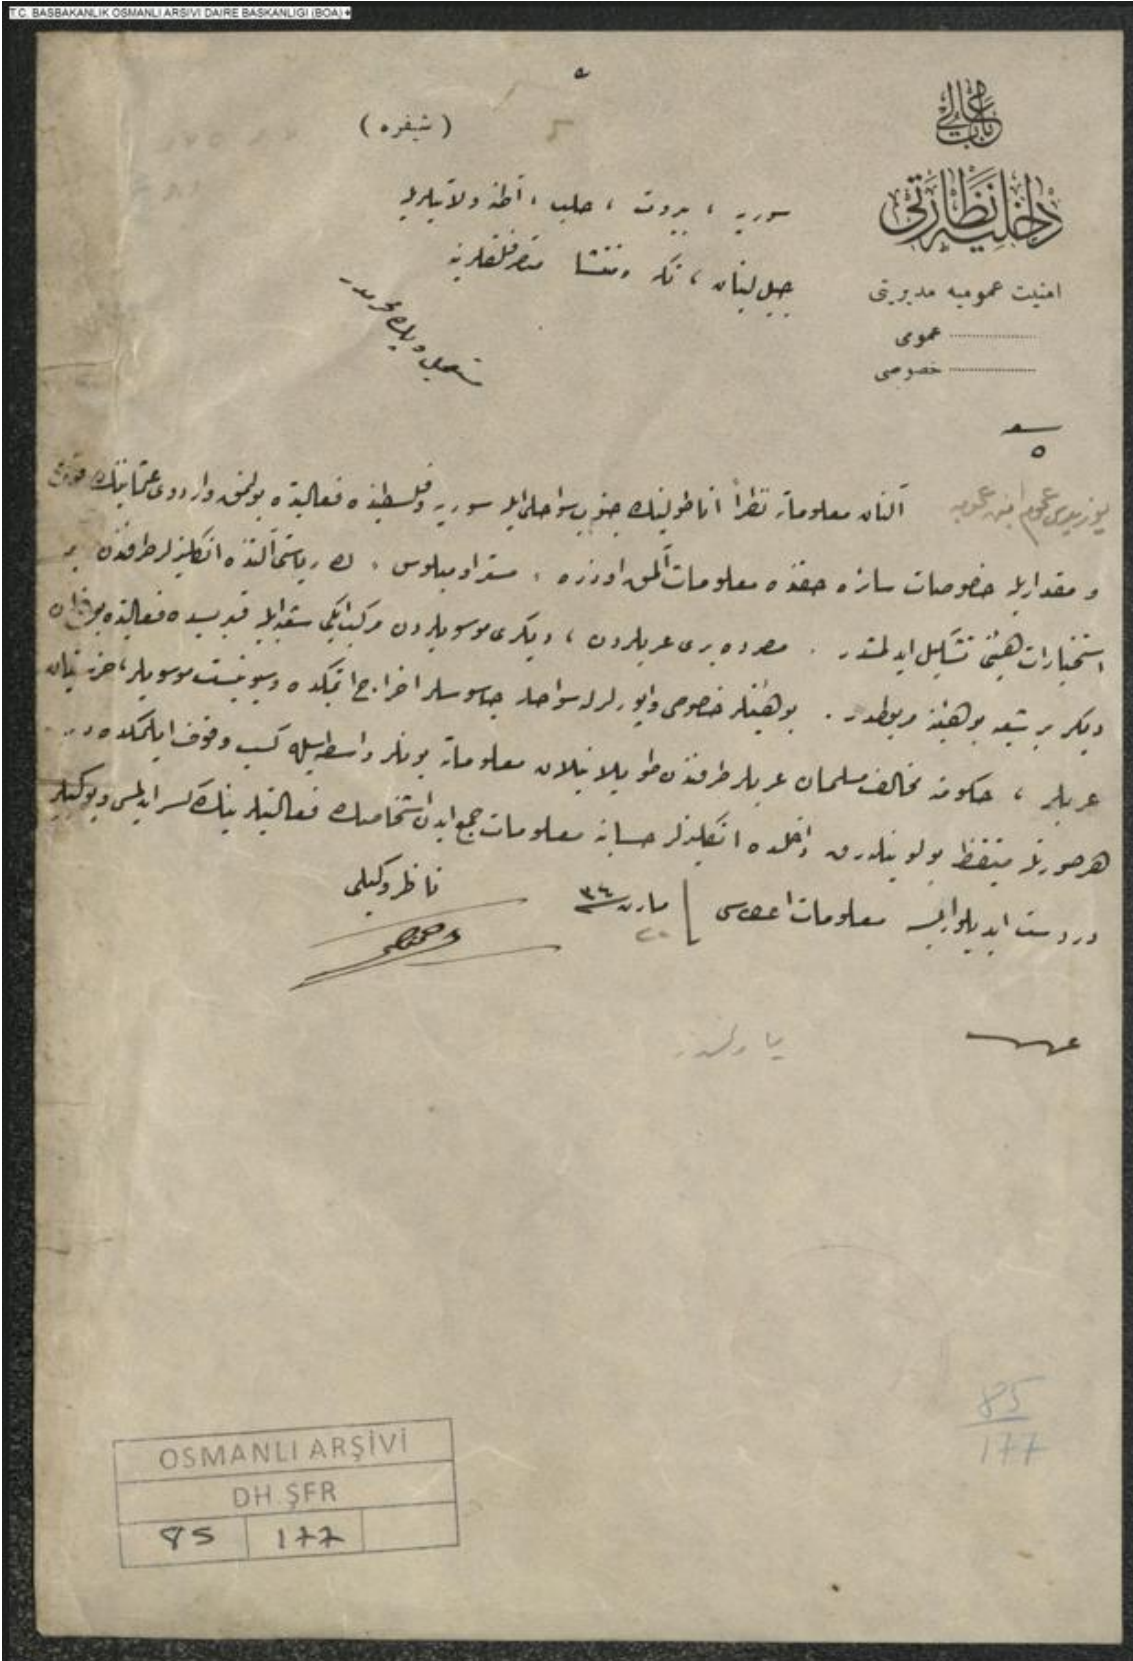 T.C. BASBAKANLIK OSMANLI ARSIVI DAIRE BASKANLIGI (BOA)
باب عالی
داخلیه نظارتی
امنیت عمومیه مدیریتی
عمومی
خصوصی
( شیفره )
سوریه ، بیروت ، حلب ، آطنه ولایتلریله
جبل لبنان ، تکه ومنتشا متصرفلقلرینه
آلنان معلوماته نظراً اناطولینك جنوب سواحلی ایله سوریه وفلسطینده فعالیتده بولنمق واردوی عثمانینك موقع
و مقداریله خصوصات سائره حقنده معلومات آلمق اوزره مستر ك ریاستی آلتنده انكلیزلر طرفندن بر
استخبارات هیئتی تشكیل ایدلمشدر . مصرده بری عربلردن ، دیكری موسویلردن مركب ایكی شعبه ایله قبریسده فعالیتده بولنان
دیكر بر شعبه بو هیئته مربوطدر . بو هیئتلر خصوصی واپورلرله سواحله جاسوسلر اخراج ایتمكده وسیونیست موسویلر ، خرستیان
عربلر ، حكومته مخالف مسلمان عربلر طرفندن طوپلانیلان معلوماته بونلر واسطه‌سیله كسب وقوف ایلمكده در
هر صورتله متیقظ بولونیلەرق داخلده انكلیزلر حسابنه معلومات جمع ایدن اشخاصك فعالیتلرینك
دردست ایدیلورایسه معلومات اعطاسی مارت ٣٤
ناظر وكیلی
85
177
OSMANLI ARŞİVİ
DH. ŞFR
85 177